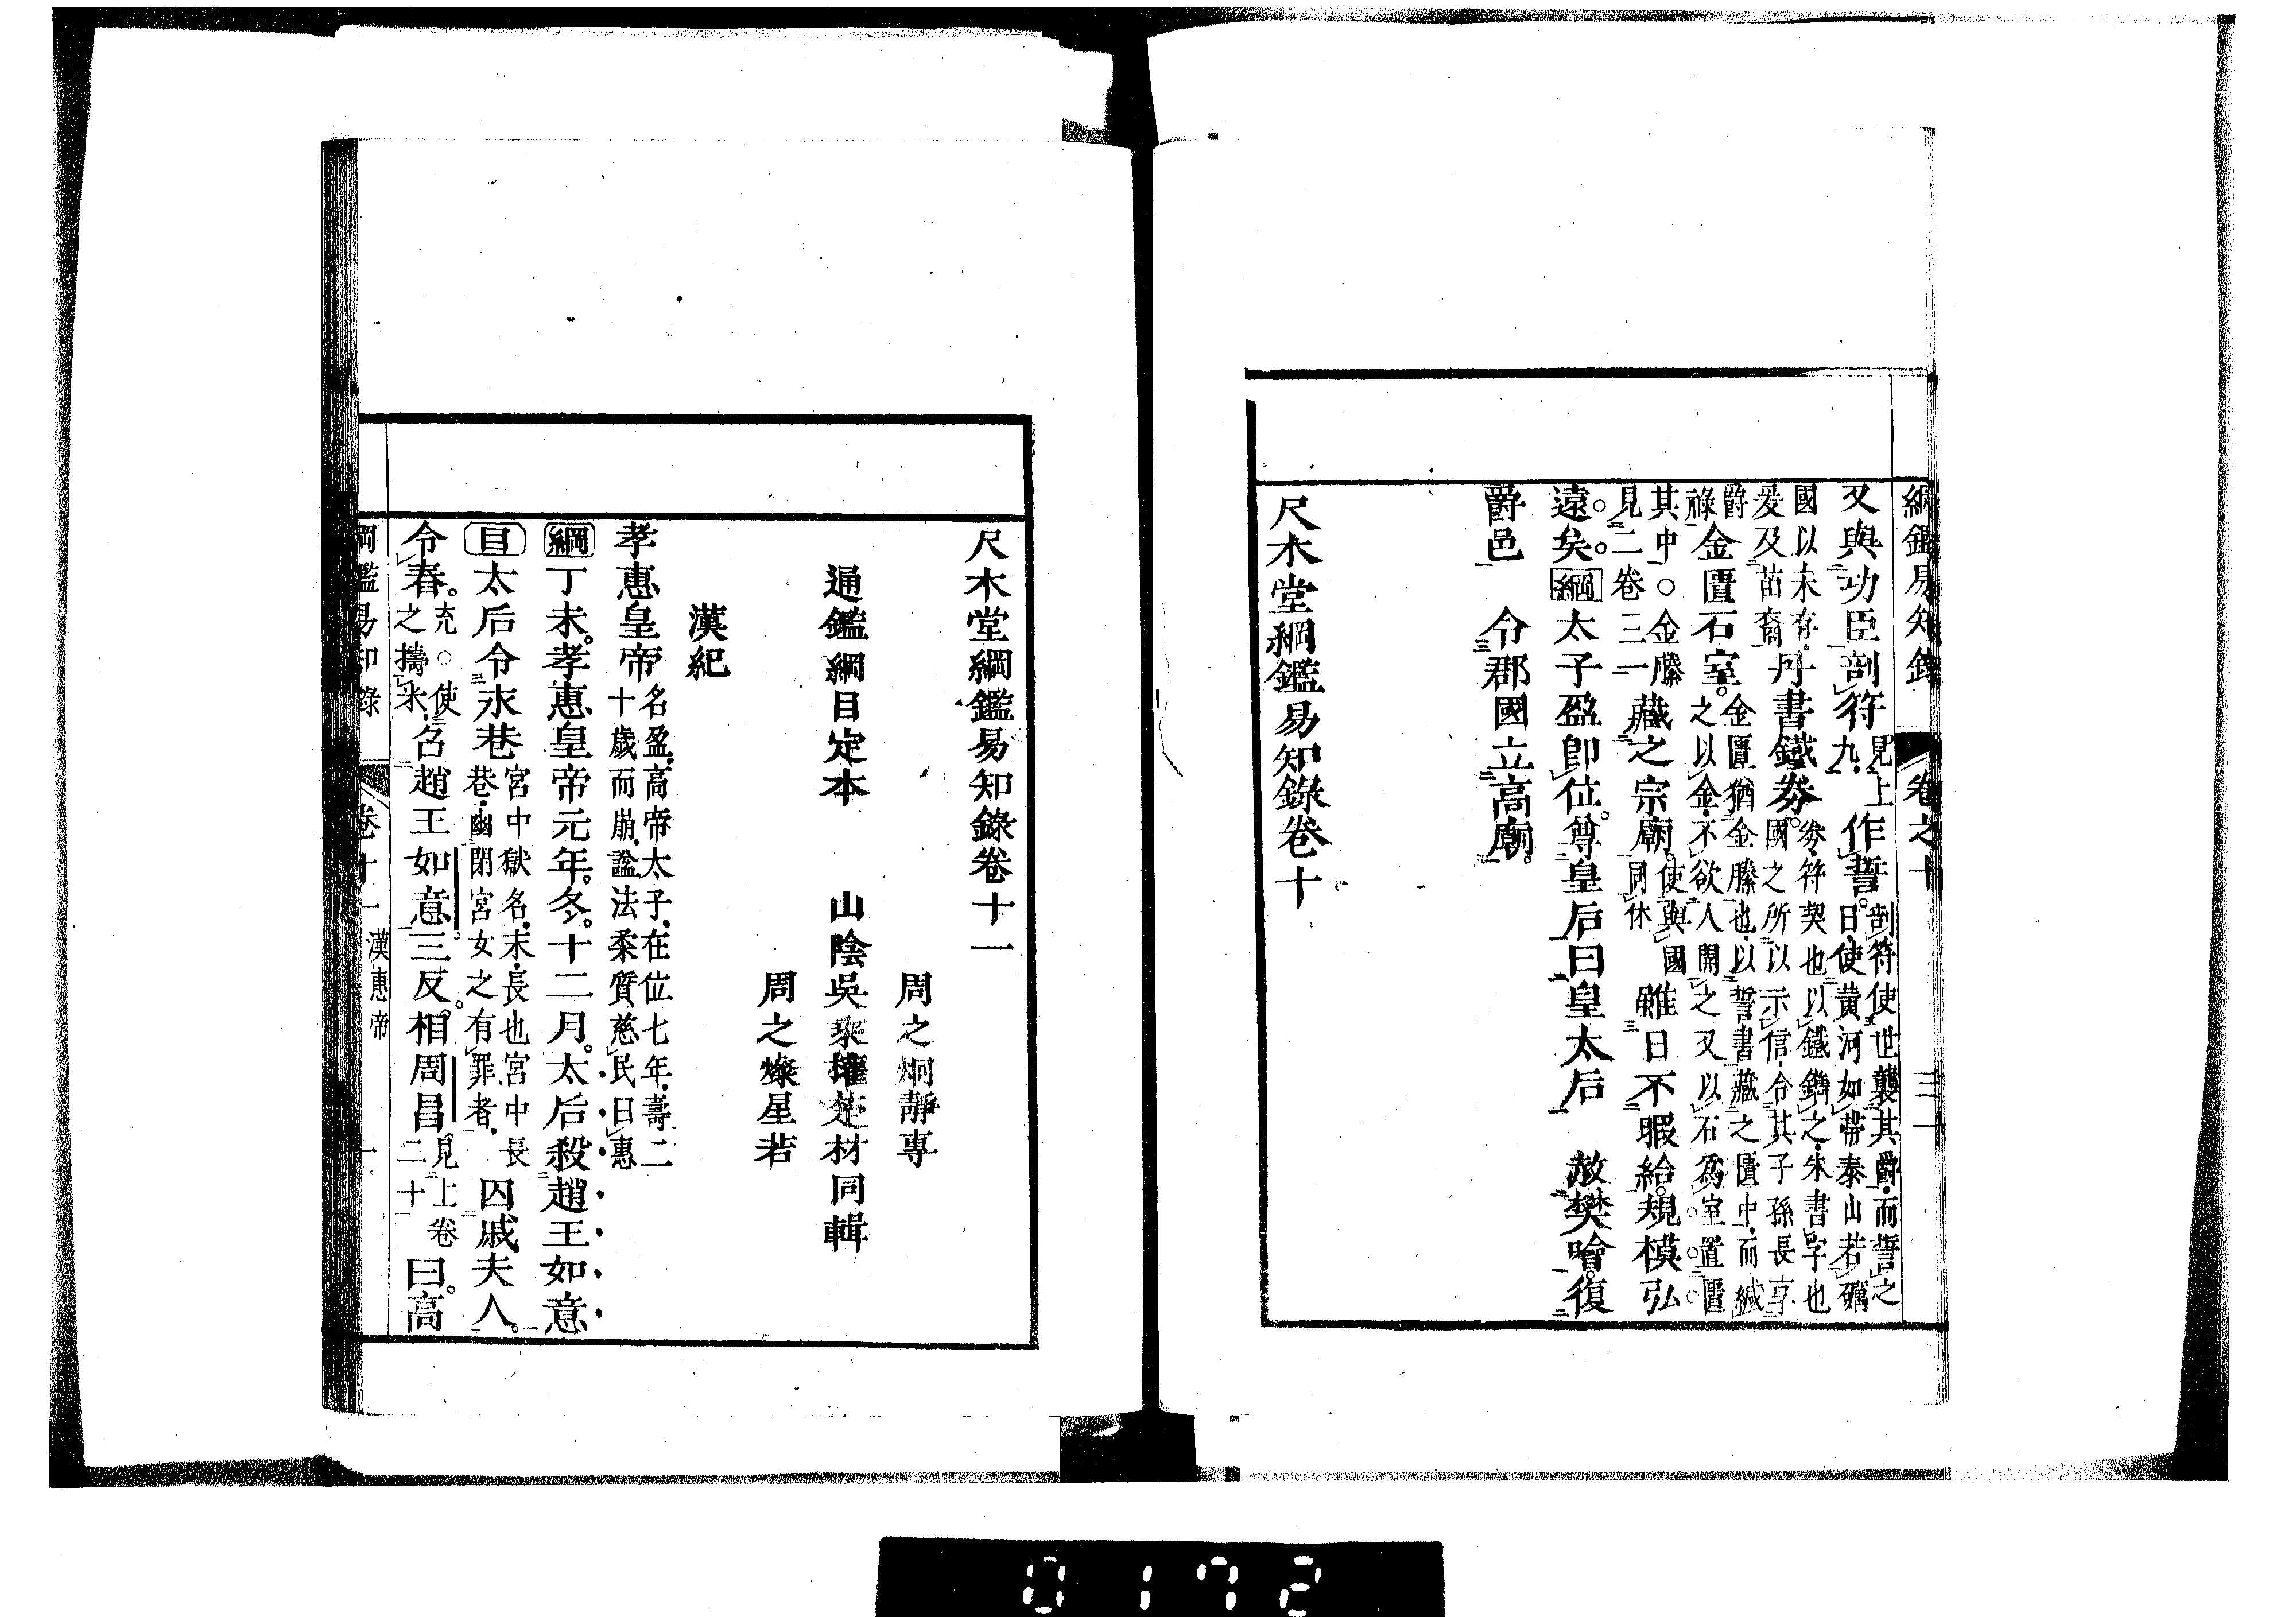 綱鑑易知錄 卷之十 三一
又與功臣剖符見上九作誓剖符使世襲其爵而誓之曰使黃河如帶泰山若礪
國以永存爰及苗裔丹書鐵券券符契也以鐵鐫之朱書字也國之所以示信令其子孫長享
爵祿金匱石室金匱猶金縢也以誓書藏之匱中而緘之以金不欲人開之又以石爲室置匱
其中○金縢見二卷三一藏之宗廟使與國同休雖日不暇給規模弘
遠矣綱太子盈卽位尊皇后曰皇太后 赦樊噲復
爵邑 令郡國立高廟
尺木堂綱鑑易知錄卷十
尺木堂綱鑑易知錄卷十一
周之炯靜專
通鑑綱目定本 山陰吳乘權楚材同輯
周之燦星若
漢紀
孝惠皇帝名盈高帝太子在位七年壽二十歲而崩謚法柔質慈民曰惠
綱丁未孝惠皇帝元年冬十二月太后殺趙王如意
目太后令永巷宮中獄名末長也宮中長巷幽閉宮女之有罪者囚戚夫人
令舂充○使之擣米召趙王如意三反相周昌見上卷二十曰高
綱鑑易知錄 卷十一 漢惠帝 一
0172